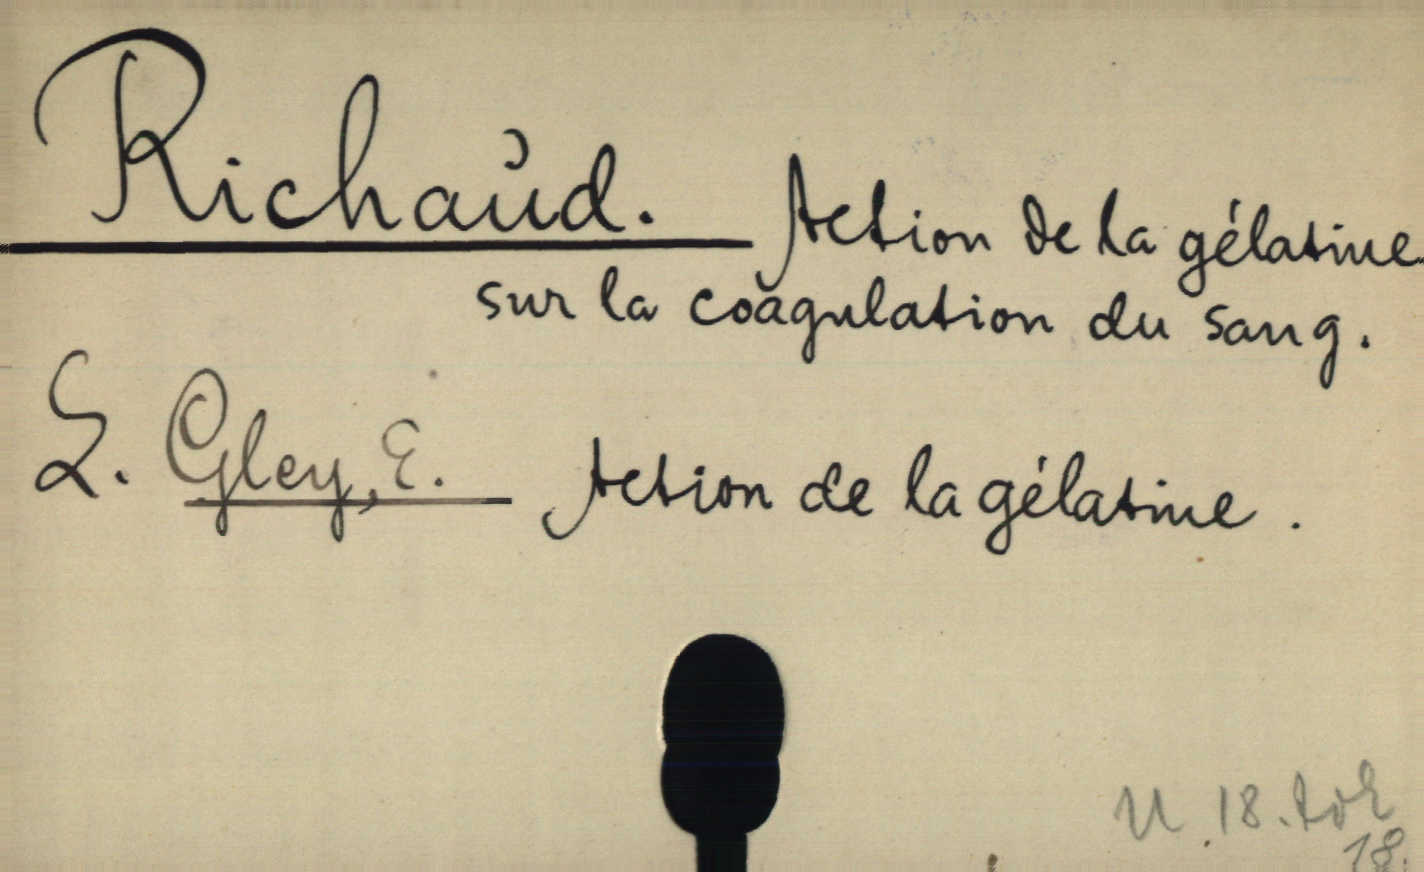 Richaud. Action de la gélatine
sur la coagulation du sang.
L. Gley, E. Action de la gélatine.
U. 18. tok
18.